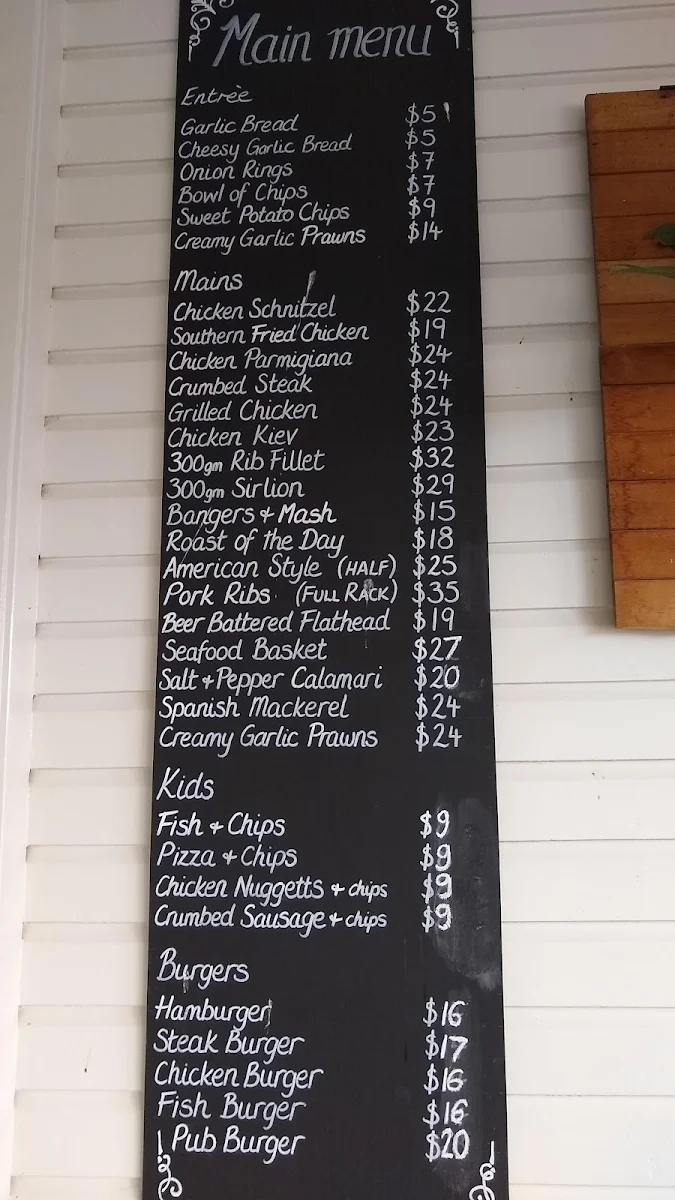 Main menu
Entrèe
Garlic Bread $5
Cheesy Garlic Bread $5
Onion Rings $7
Bowl of Chips $7
Sweet Potato Chips $9
Creamy Garlic Prawns $14
Mains
Chicken Schnitzel $22
Southern Fried Chicken $19
Chicken Parmigiana $24
Crumbed Steak $24
Grilled Chicken $24
Chicken Kiev $23
300gm Rib Fillet $32
300gm Sirlion $29
Bangers & Mash $15
Roast of the Day $18
American Style (HALF) $25
Pork Ribs (FULL RACK) $35
Beer Battered Flathead $19
Seafood Basket $27
Salt & Pepper Calamari $20
Spanish Mackerel $24
Creamy Garlic Prawns $24
Kids
Fish & Chips $9
Pizza & Chips $9
Chicken Nuggetts & chips $9
Crumbed Sausage & chips $9
Burgers
Hamburger $16
Steak Burger $17
Chicken Burger $16
Fish Burger $16
Pub Burger $20